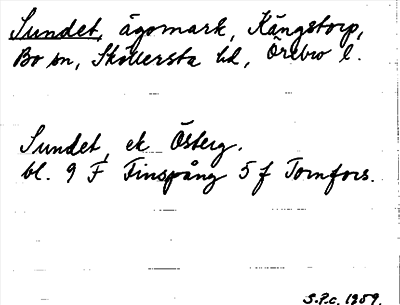 Sundet, ägomark, Kängstorp,
Bo sn, Sköllersta hd, Örebro l.
Sundet, ek Österg.
bl. 9 F Finspång 5 f Tornfors.
S.P.c. 1959.